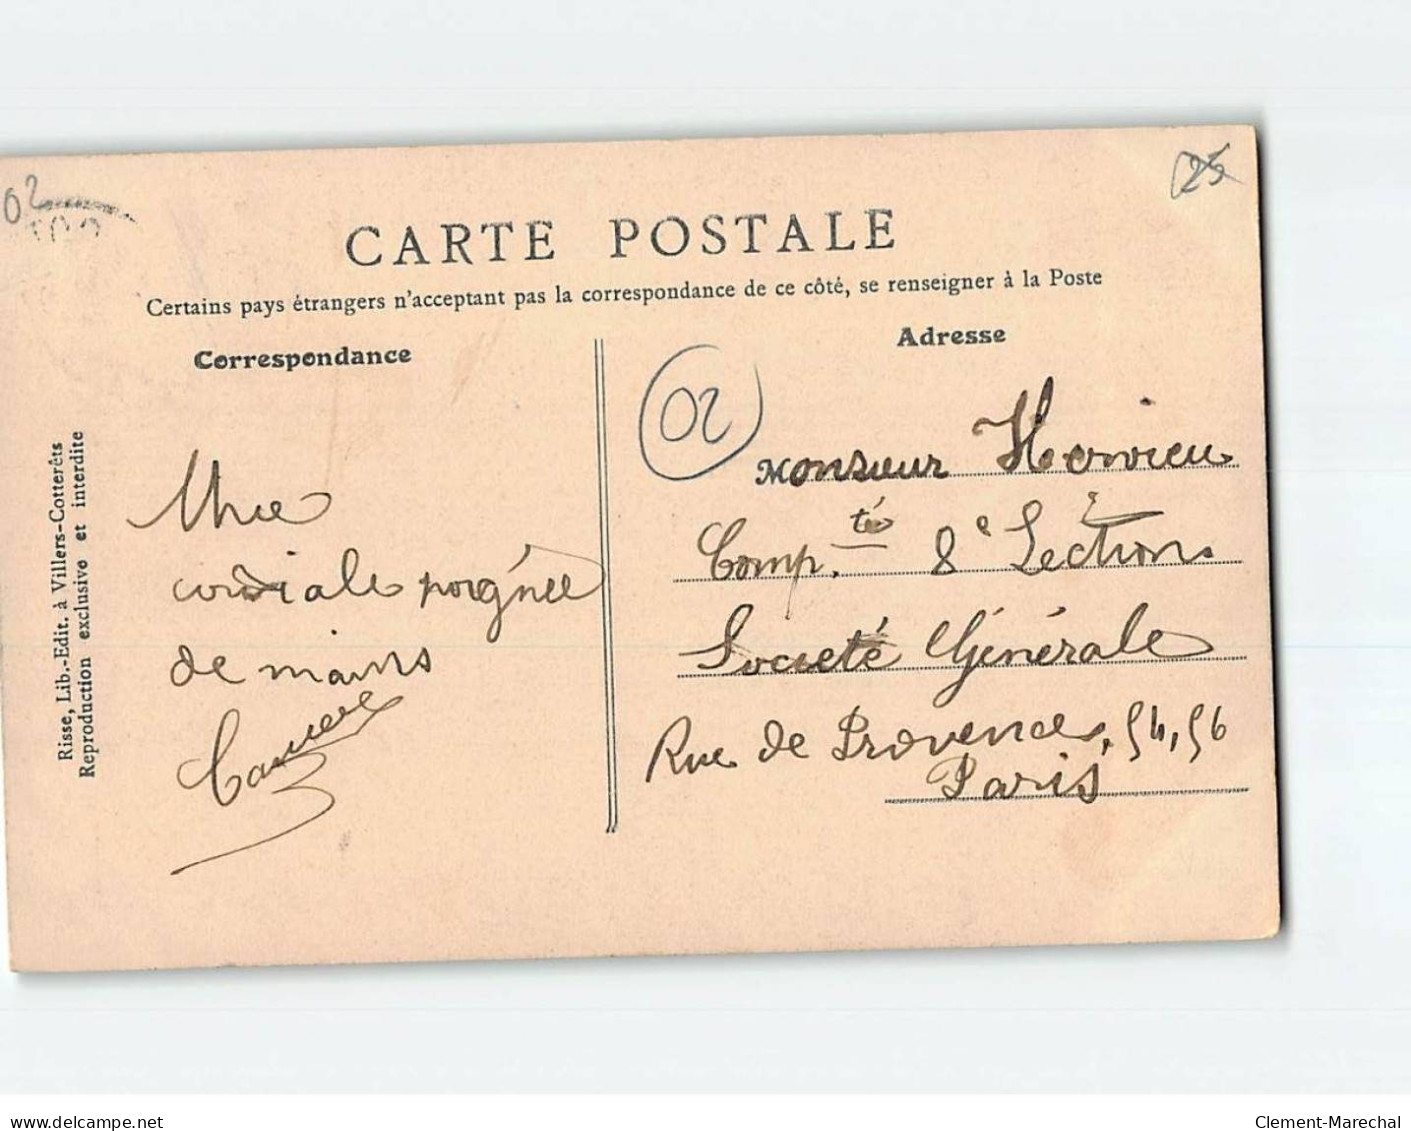 02
25
CARTE POSTALE
Certains pays étrangers n'acceptant pas la correspondance de ce côté, se renseigner à la Poste
Correspondance
Adresse
Risse, Lib.-Edit. à Villers-Cotterêts
Reproduction exclusive et interdite
Une
cordiale poignée
de mains
02
Monsieur Hervieu
Comp.té 8e Section
Société Générale
Rue de Provence, 54, 56
Paris
www.delcampe.net
Clement-Marechal